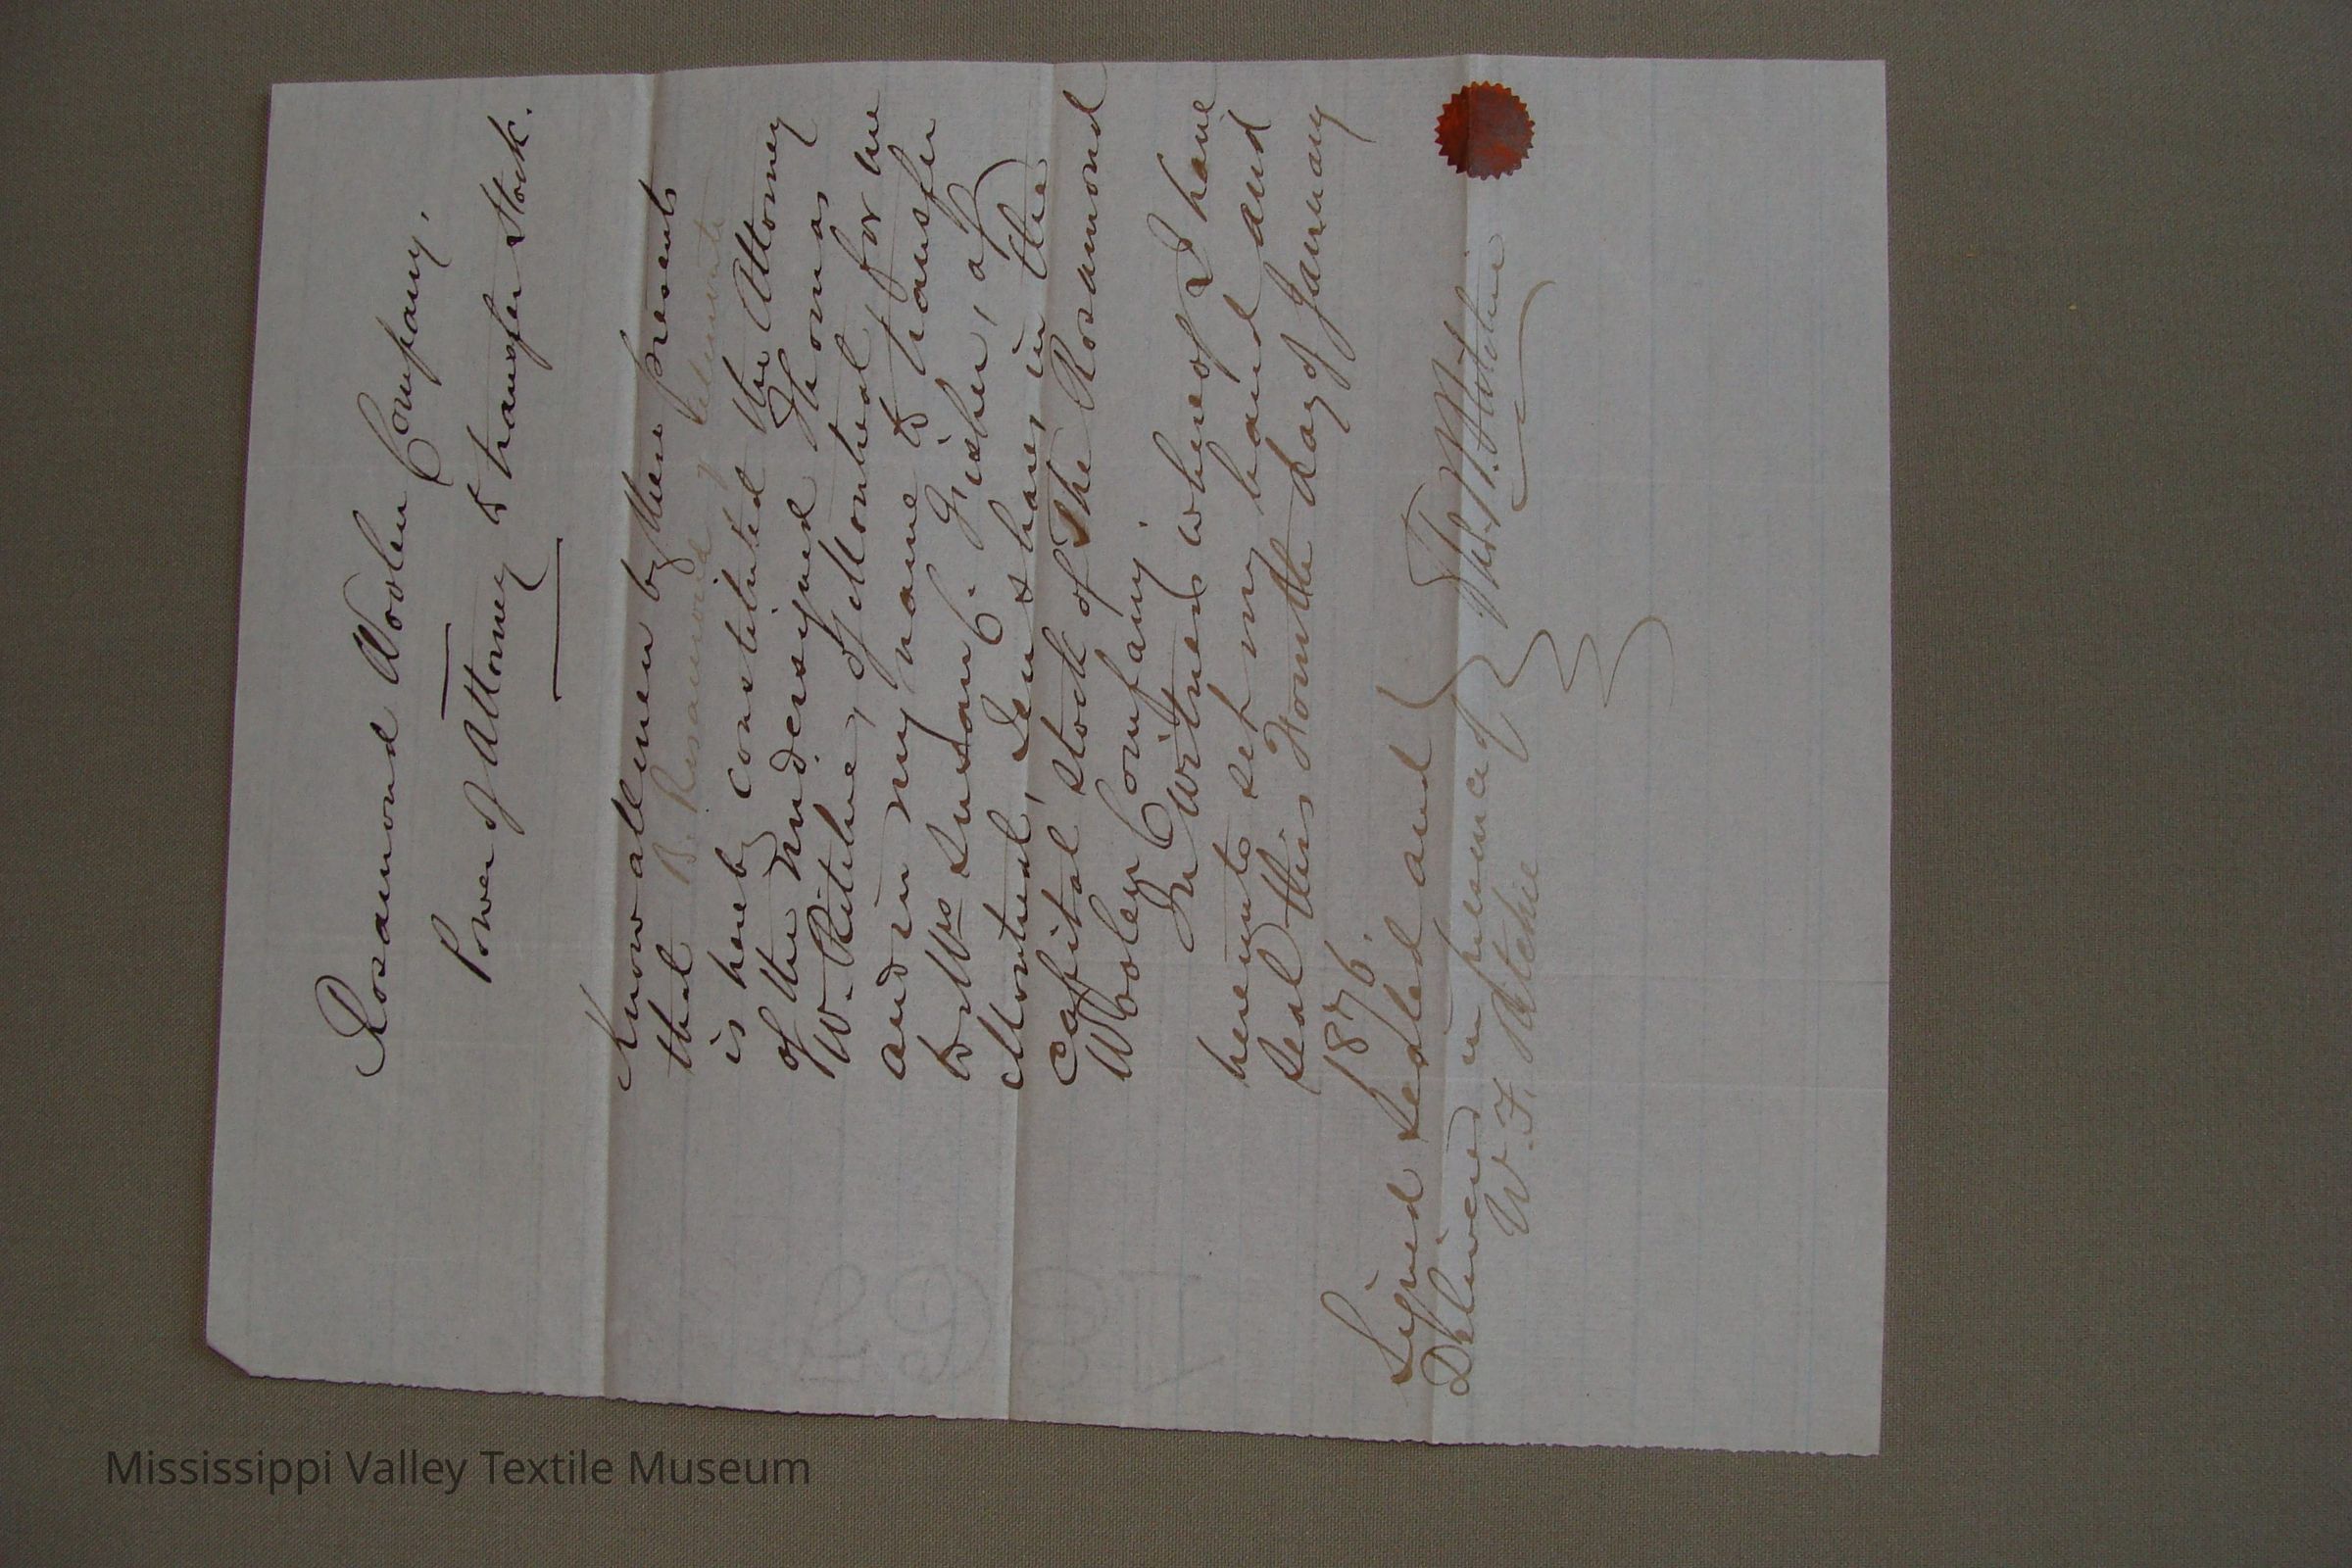 Rosamond Woolen Company,
Power of Attorney to transfer Stock.
Know all men by these presents
that B. Rosamond of Almonte
is hereby constituted the Attorney
of the undersigned Thomas
W. Ritchie, of Montreal for me
and in my name to transfer
to Mrs Susan C. Fisher, of
Montreal, Ten shares in the
Capital stock of The Rosamond
Woolen Company.
In Witness whereof I have
hereunto set my hand and
seal this Fourth day of January
1876.
Signed sealed and
Delivered in presence of
Thos. W. Ritchie
W. F. Ritchie
Mississippi Valley Textile Museum